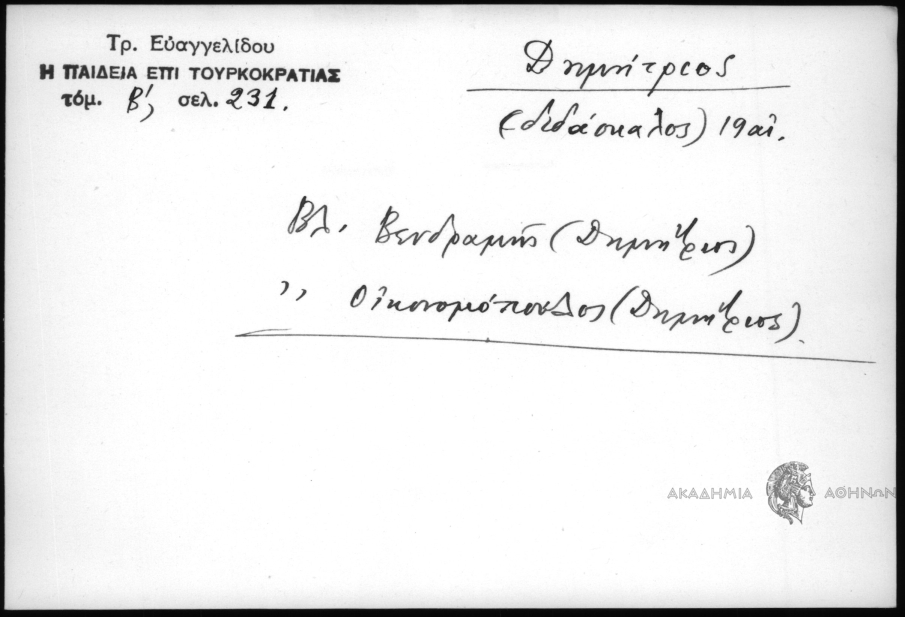 Τρ. Εὐαγγελίδου
Η ΠΑΙΔΕΙΑ ΕΠΙ ΤΟΥΡΚΟΚΡΑΤΙΑΣ
τόμ. Β', σελ. 231.
Δημήτριος
(διδάσκαλος) 19 αἰ.
Βλ. Βενδραμής (Δημήτριος)
,, Οἰκονομόπουλος (Δημήτριος).
ΑΚΑΔΗΜΙΑ ΑΘΗΝΩΝ